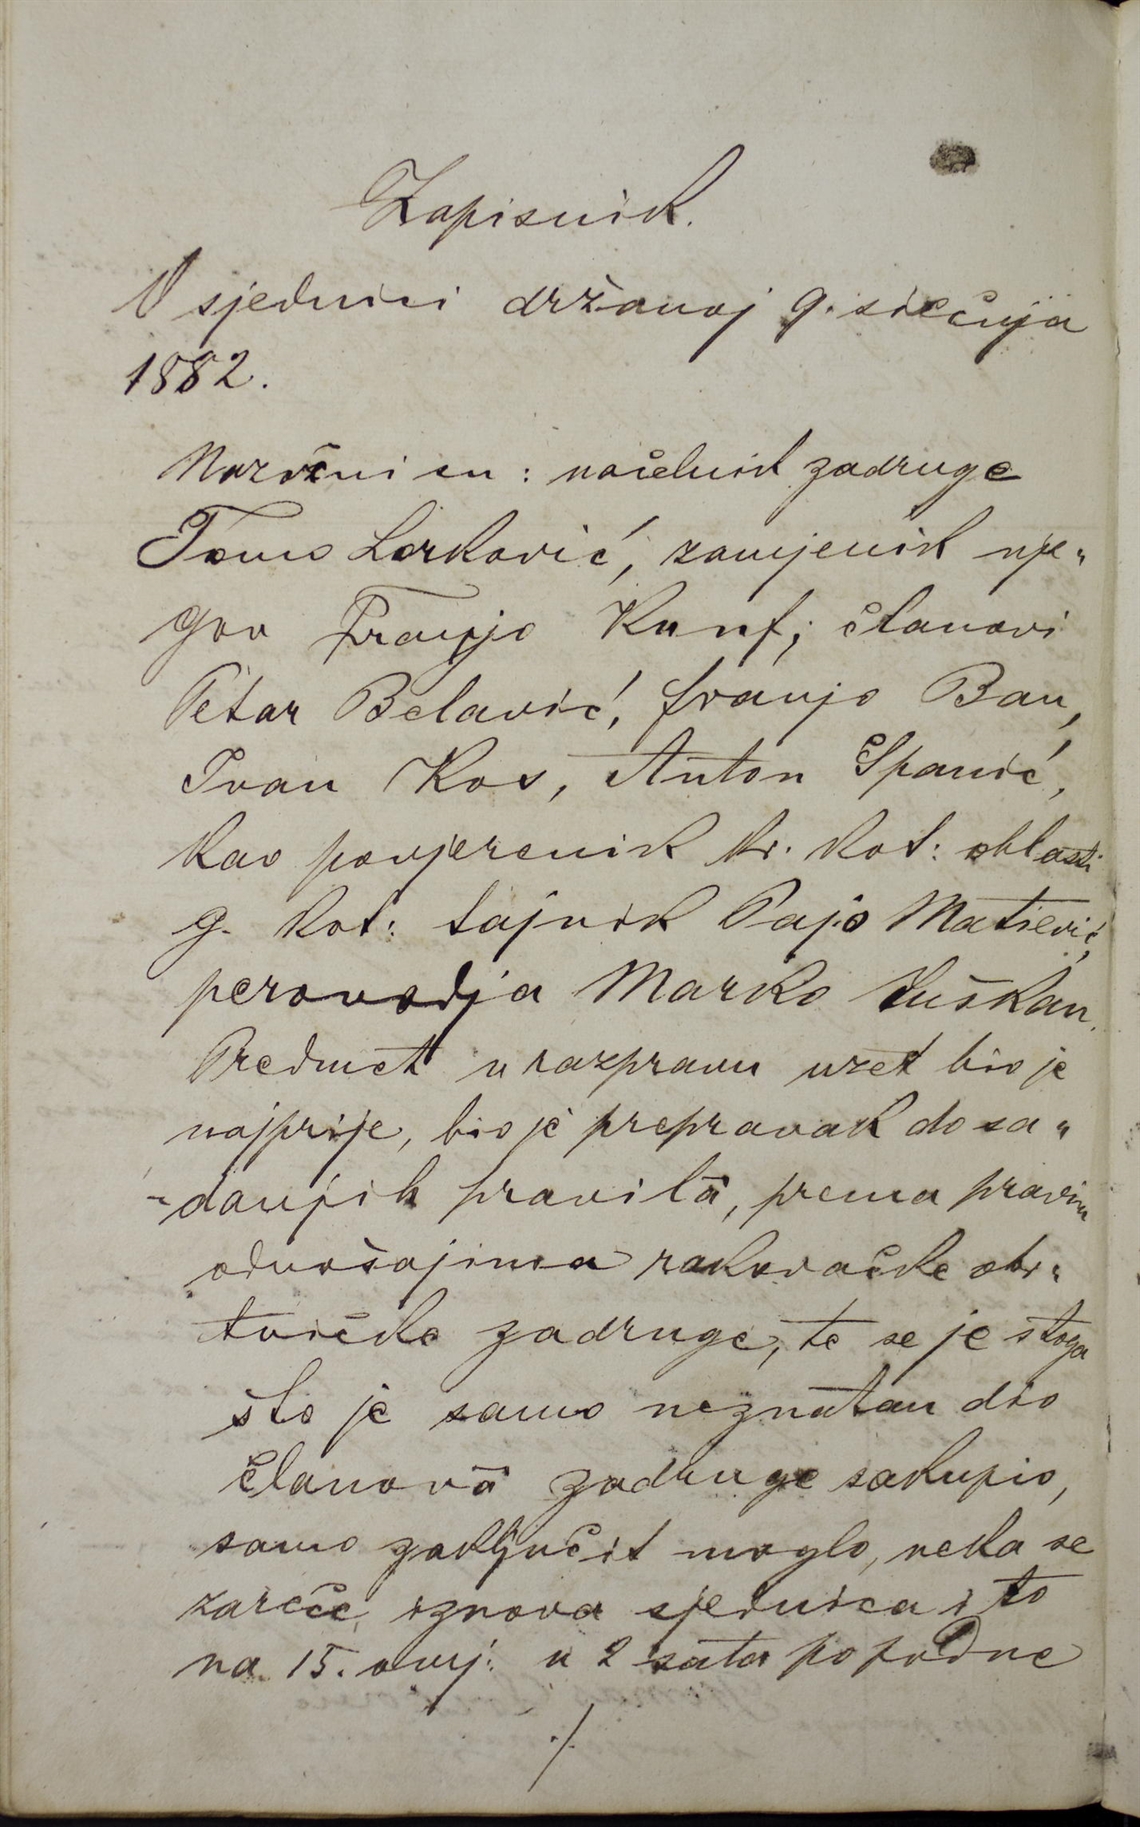 Zapisnik.
U sjednici držanoj 9. siečnja
1882.
Nazočni su: načelnik zadruge
Tomo Lorković, zamjenik nje„
gov Franjo Kunf; članovi
Petar Belavić, franjo Ban,
Ivan Kos, Anton Španić,
kao povjerenik kr. kot: oblasti
g. kot: tajnik Pajo Matiević,
perovodja Marko Tuškan.
Predmet u razpravu uzet bio je
najprije, bio je prepravak dosa„
„danjih pravilâ, prema pravim
odnošajima rakovačke obr„
tničke zadruge, te se je stoga
što je samo neznatan dio
članovâ zadruge sakupio,
samo zaključit moglo, neka se
zareče iznova sjednica i to
na 15. ovmj: u 2 sata po podne
./.